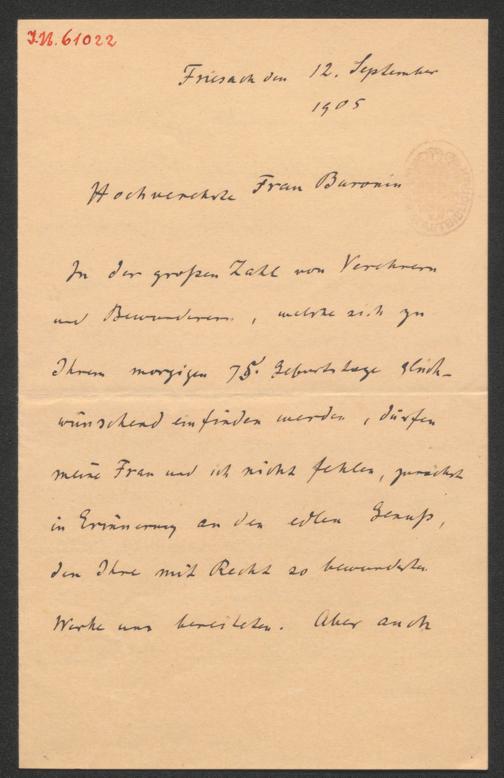 I.N. 61022
Friesach den 12. September
1905
Hochverehrte Frau Baronin
In der großen Zahl von Verehrern
und Bewunderern, welche sich zu
Ihrem morgigen 75. Geburtstage glück-
wünschend einfinden werden, dürfen
meine Frau und ich nicht fehlen, zunächst
in Erinnerung an den edlen Genuß,
den Ihre mit Recht so bewunderten
Werke uns bereiteten. Aber auch